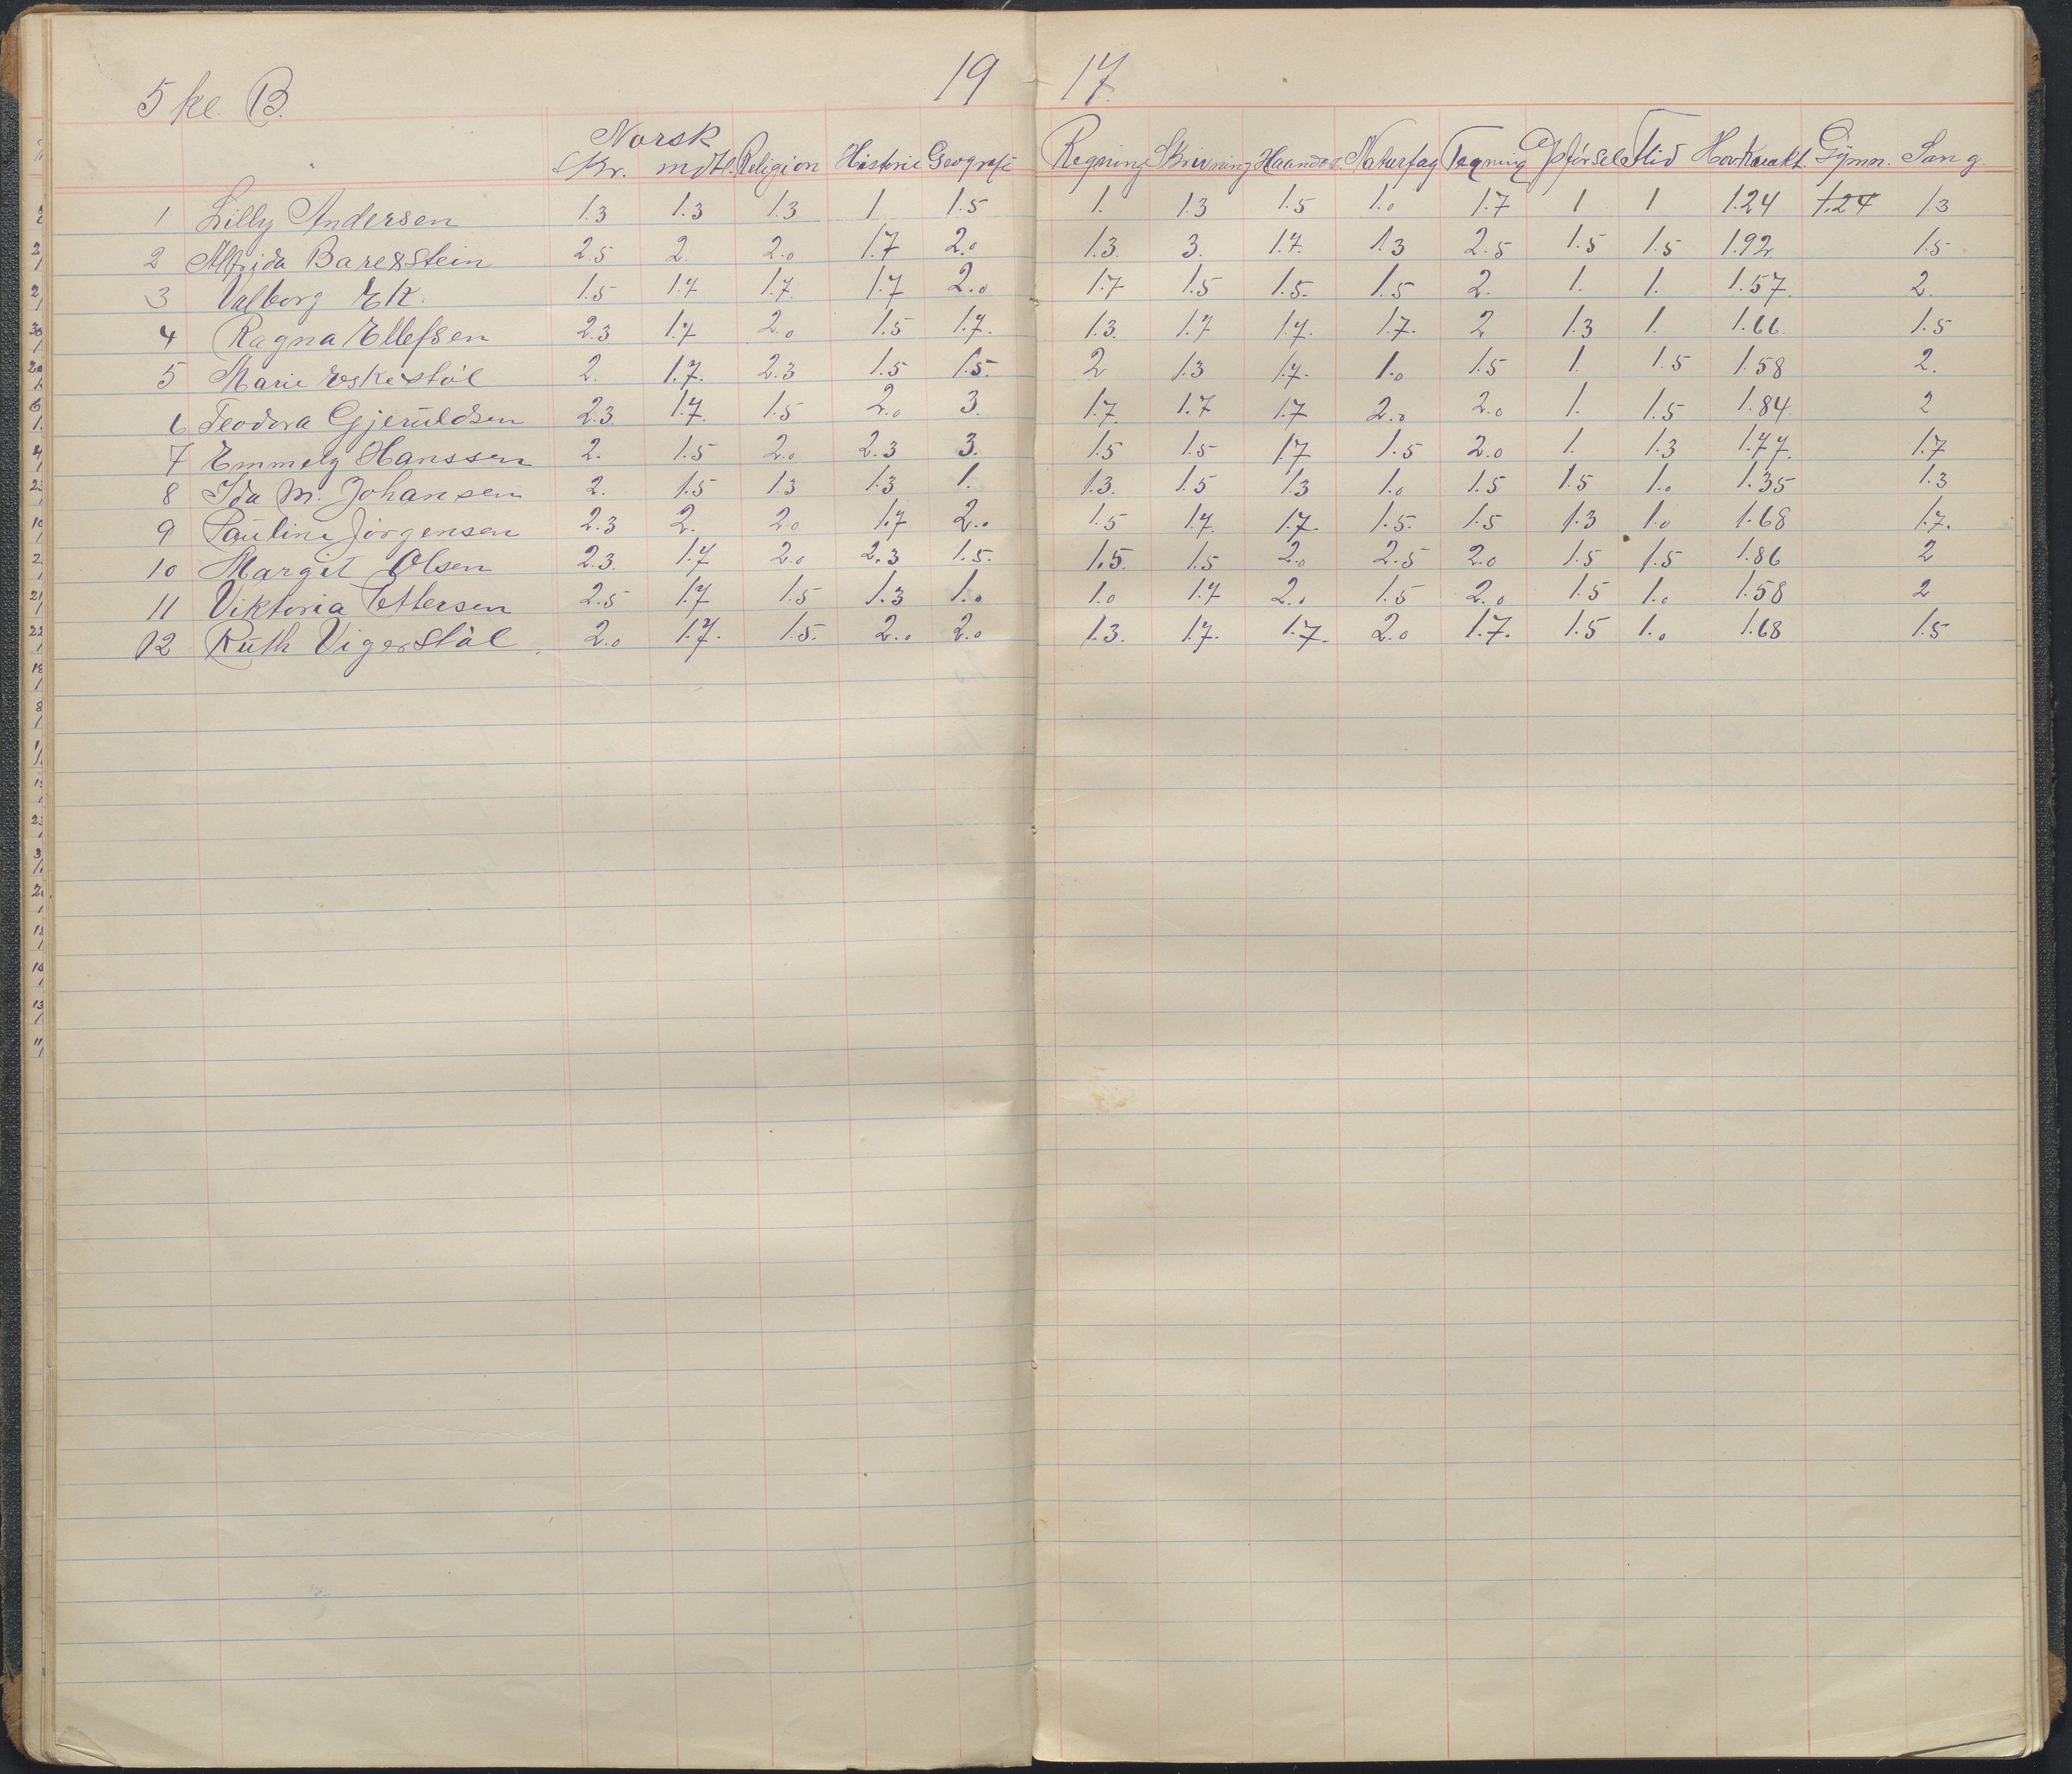 5 kl. B. 19 17.
Norsk
Skr. mdtl. Religion Historie Geografi Regning Skrivning Haandar. Naturfag Tegning Opførsel Flid Hovkarakt. Gymn. Sang
1 Lilly Andersen 1.3 1.3 1.3 1 1.5 1. 1.3 1.5 1.0 1.7 1 1 1.24 1.24 1.3
2 Alfrida Barexstein 2.5 2. 2.0 1.7 2.0 1.3. 3. 1.7. 1.3 2.5 1.5 1.5 1.92. 1.5
3 Valborg Ek. 1.5 1.7 1.7. 1.7 2.0 1.7 1.5 1.5. 1.5 2. 1. 1. 1.57. 2.
4 Ragna Ellefsen 2.3 1.7 2.0 1.5 1.7. 1.3. 1.7 1.7. 1.7. 2 1.3 1. 1.66. 1.5
5 Marie Eskestøl 2. 1.7. 2.3 1.5 1.5. 2 1.3 1.7. 1.0 1.5 1. 1.5 1.58 2.
6 Teodora Gjeruldsen 2.3. 1.7. 1.5 2.0 3. 1.7. 1.7 1.7 2.0 2.0 1. 1.5 1.84. 2
7 Emmely Hanssen 2. 1.5 2.0 2.3 3. 1.5 1.5 1.7 1.5 2.0 1. 1.3 1.77. 1.7
8 Ida M. Johansen 2. 1.5 1.3 1.3 1. 1.3. 1.5 1.3 1.0 1.5 1.5 1.0 1.35 1.3
9 Pauline Jørgensen 2.3 2. 2.0 1.7 2.0 1.5 1.7. 1.7. 1.5. 1.5 1.3 1.0 1.68 1.7.
10 Margit Olsen 2.3. 1.7 2.0 2.3 1.5. 1.5. 1.5 2.0 2.5 2.0 1.5 1.5 1.86 2
11 Viktoria Ettersen 2.5 1.7 1.5 1.3 1.0 1.0 1.7 2.0 1.5 2.0 1.5 1.0 1.58 2
12 Ruth Vigerstøl. 2.0 1.7. 1.5. 2.0 2.0 1.3. 1.7. 1.7. 2.0 1.7. 1.5 1.0 1.68 1.5